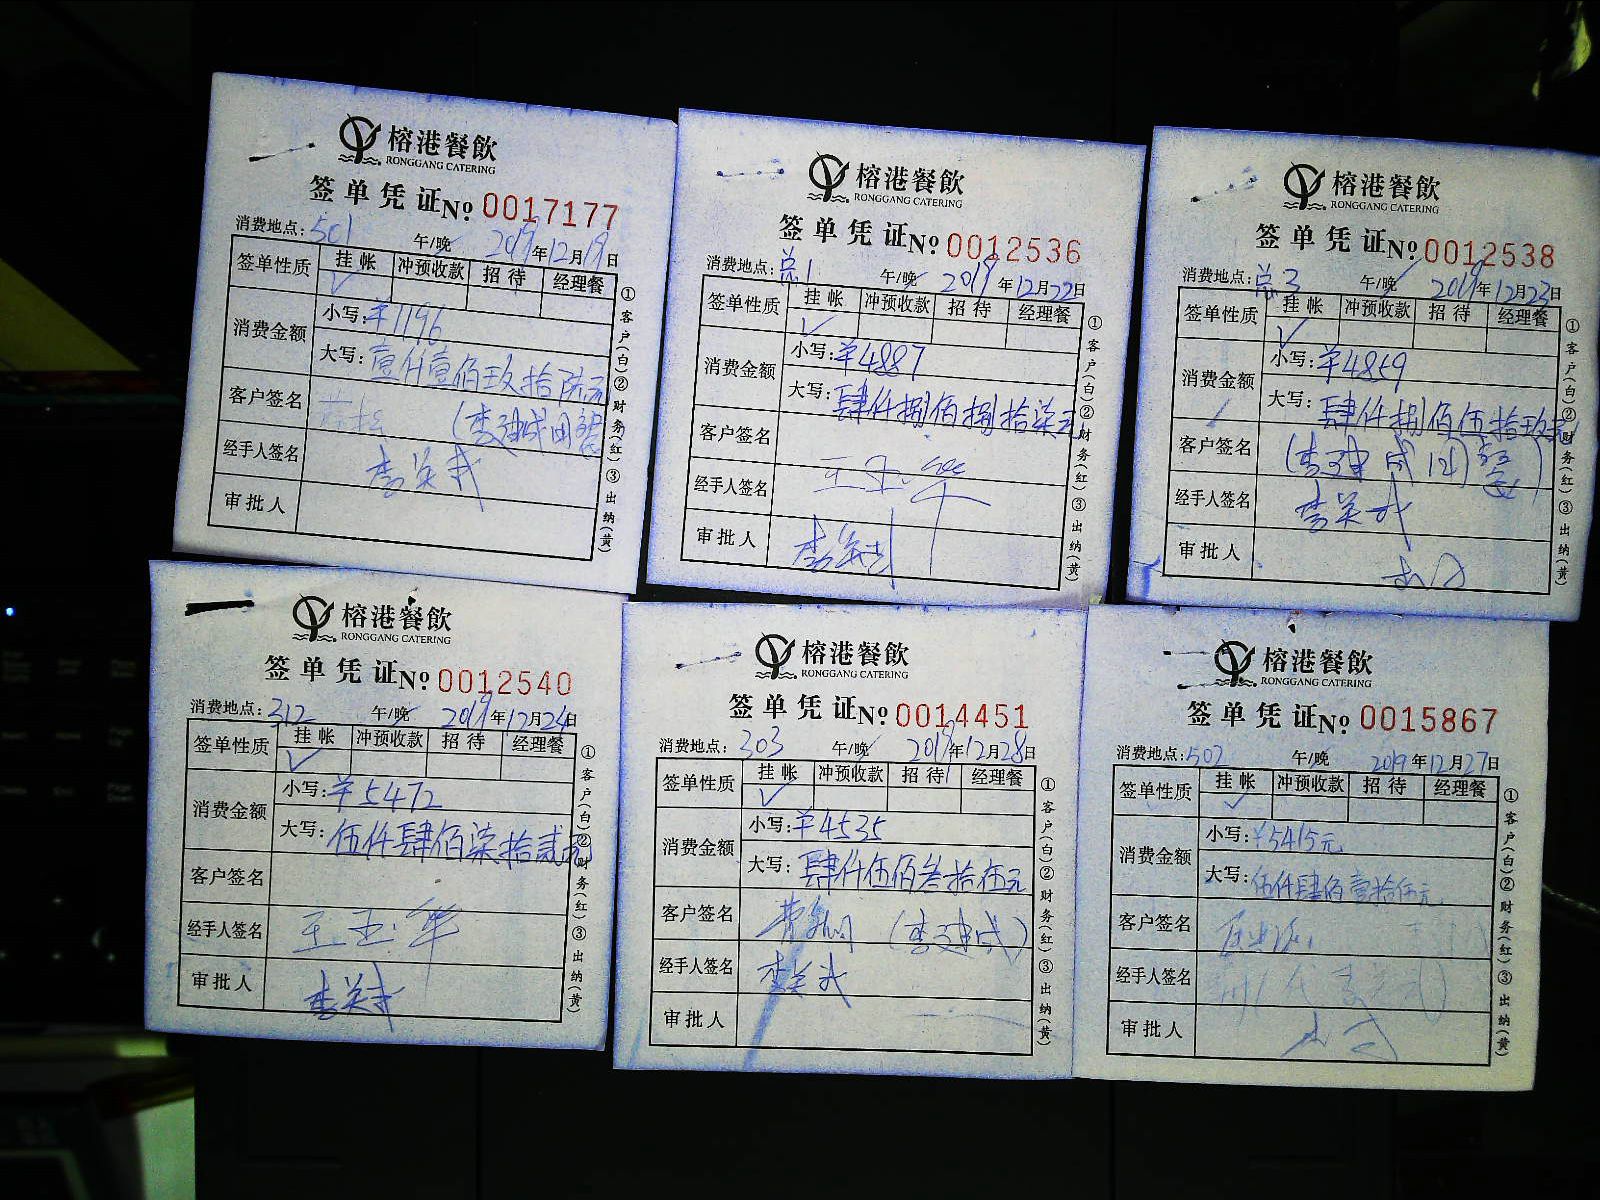 榕港餐飲
RONGGANG CATERING
签单凭证 № 0017177
消费地点: 501 午/晚 2019年12月19日
签单性质 挂帐 冲预收款 招待 经理餐
✓
消费金额 小写: ¥1196
大写: 壹仟壹佰玖拾陆元
客户签名 (李建成
经手人签名 李英武
审批人
①客户(白)②财务(红)③出纳(黄)
榕港餐飲
RONGGANG CATERING
签单凭证 № 0012536
消费地点: 总1 午/晚 2019年12月22日
签单性质 挂帐 冲预收款 招待 经理餐
✓
消费金额 小写: ¥4887
大写: 肆仟捌佰捌拾柒元
客户签名
经手人签名 王玉华
审批人
①客户(白)②财务(红)③出纳(黄)
榕港餐飲
RONGGANG CATERING
签单凭证 № 0012538
消费地点: 总3 午/晚 2019年12月23日
签单性质 挂帐 冲预收款 招待 经理餐
✓
消费金额 小写: ¥4859
大写: 肆仟捌佰伍拾玖元
客户签名 (李建成
经手人签名 李英武
审批人
①客户(白)②财务(红)③出纳(黄)
榕港餐飲
RONGGANG CATERING
签单凭证 № 0012540
消费地点: 312 午/晚 2019年12月24日
签单性质 挂帐 冲预收款 招待 经理餐
✓
消费金额 小写: ¥5472
大写: 伍仟肆佰柒拾贰元
客户签名
经手人签名 王玉华
审批人 李英武
①客户(白)②财务(红)③出纳(黄)
榕港餐飲
RONGGANG CATERING
签单凭证 № 0014451
消费地点: 303 午/晚 2019年12月28日
签单性质 挂帐 冲预收款 招待 经理餐
✓
消费金额 小写: ¥4535
大写: 肆仟伍佰叁拾伍元
客户签名 (李建成)
经手人签名 李英武
审批人
①客户(白)②财务(红)③出纳(黄)
榕港餐飲
RONGGANG CATERING
签单凭证 № 0015867
消费地点: 502 午/晚 2019年12月27日
签单性质 挂帐 冲预收款 招待 经理餐
✓
消费金额 小写: ¥5415元
大写: 伍仟肆佰壹拾伍元
客户签名
经手人签名
审批人
①客户(白)②财务(红)③出纳(黄)